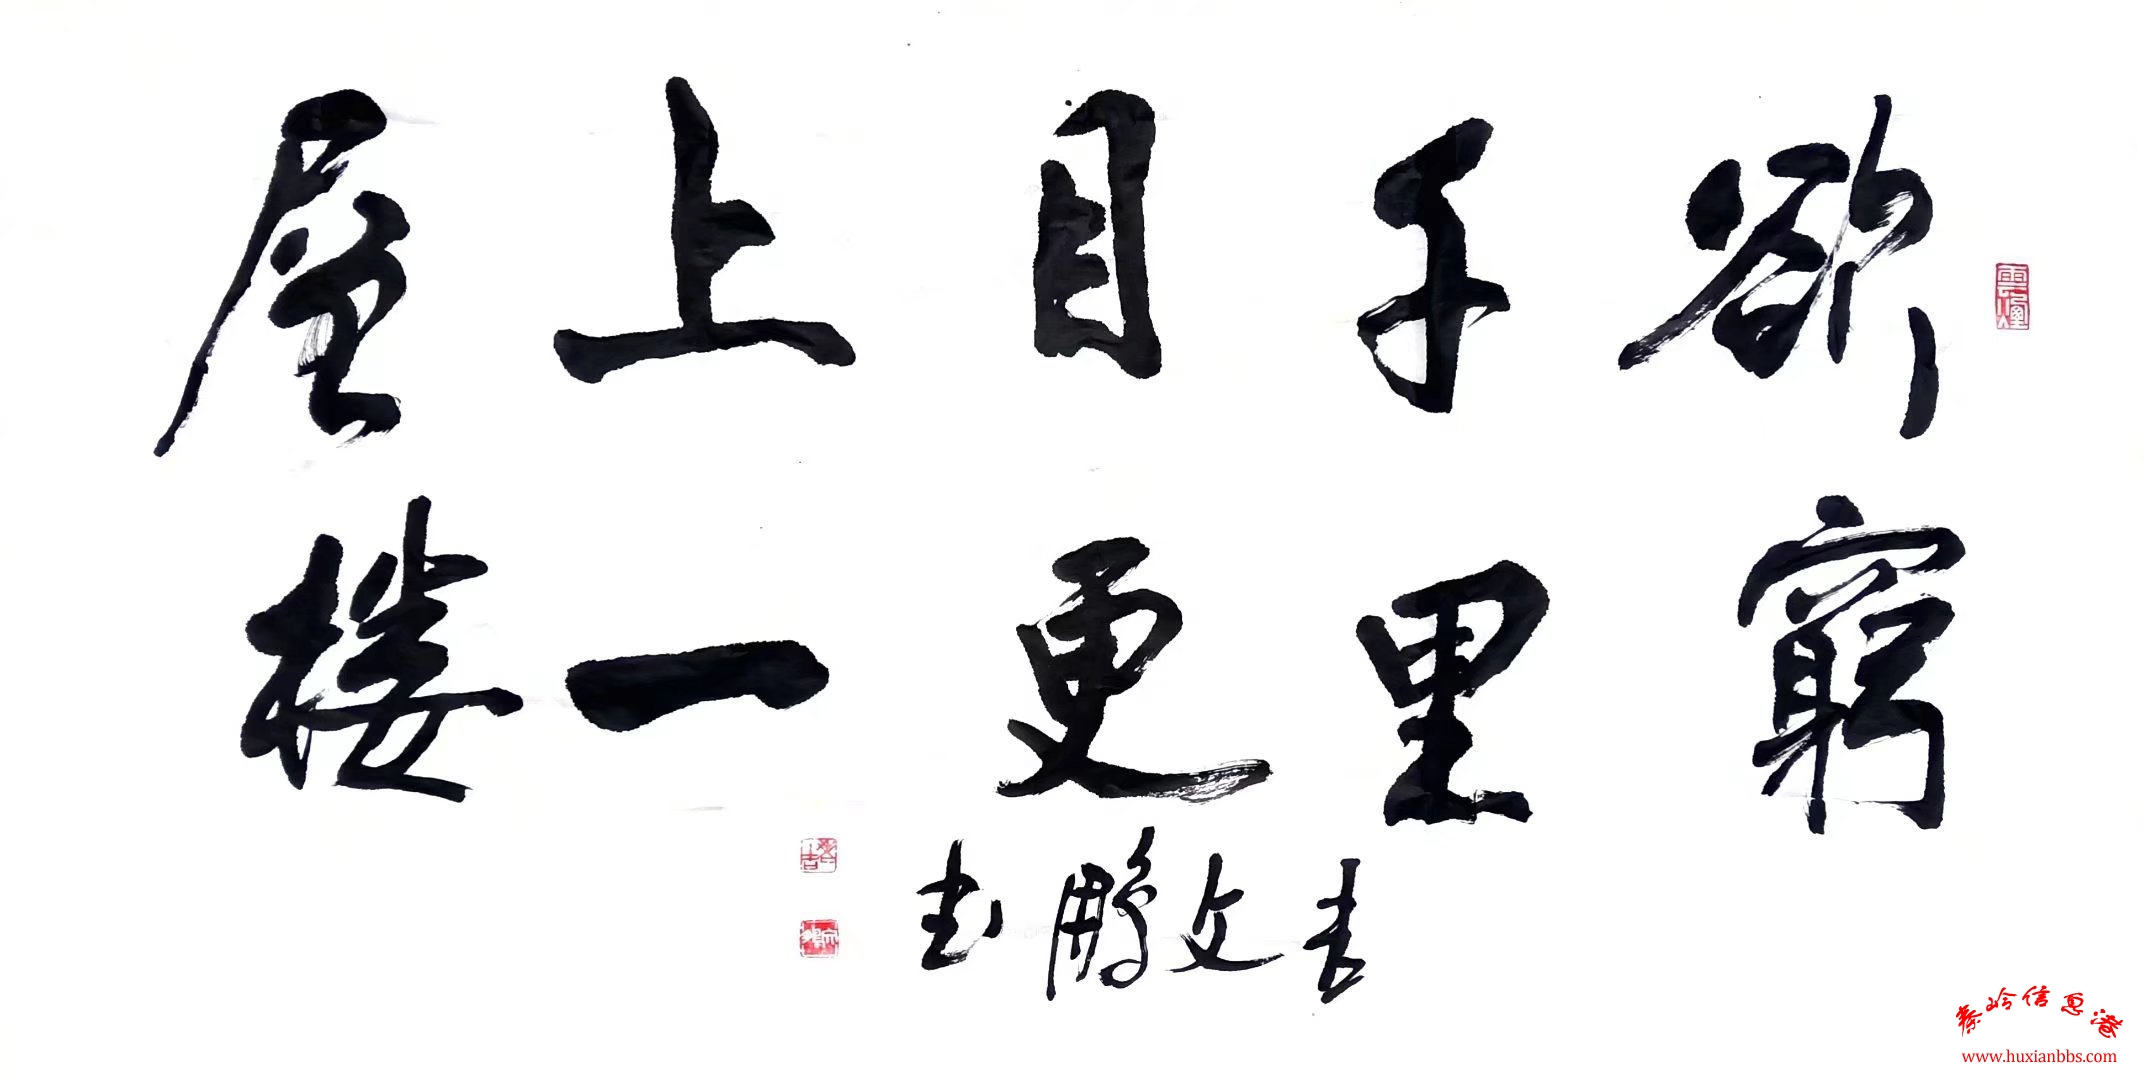 欲窮
千里
目更
上一
层楼
文鹏书
雲煙
秦岭信息港
www.huxianbbs.com